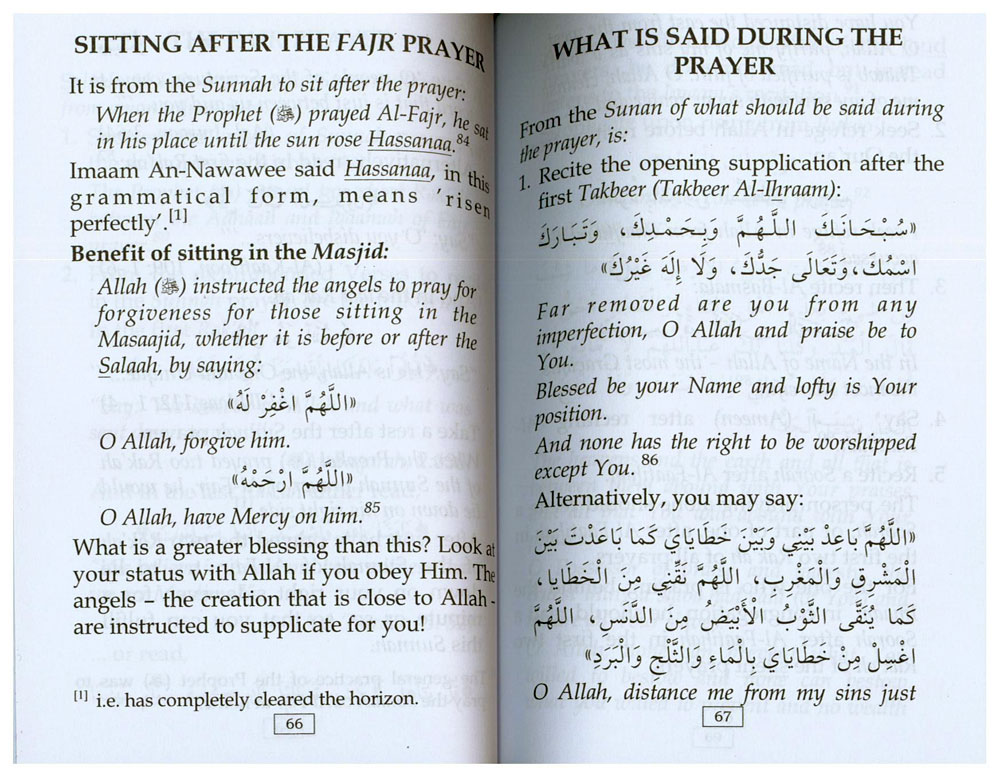 SITTING AFTER THE FAJR PRAYER
It is from the Sunnah to sit after the prayer:
When the Prophet (ﷺ) prayed Al-Fajr, he sat
in his place until the sun rose Hassanaa.84
Imaam An-Nawawee said 'Hassanaa, in this
grammatical form, means 'risen
perfectly'.[1]
Benefit of sitting in the Masjid:
Allah (ﷻ) instructed the angels to pray for
forgiveness for those sitting in the
Masaajid, whether it is before or after the
Salaah, by saying:
«اللَّهُمَّ اغْفِرْ لَهُ»
O Allah, forgive him.
«اللَّهُمَّ ارْحَمْهُ»
O Allah, have Mercy on him.85
What is a greater blessing than this? Look at
your status with Allah if you obey Him. The
angels – the creation that is close to Allah -
are instructed to supplicate for you!
[1] i.e. has completely cleared the horizon.
66
WHAT IS SAID DURING THE
PRAYER
From the Sunan of what should be said during
the prayer, is:
1. Recite the opening supplication after the
first Takbeer (Takbeer Al-Ihraam):
«سُبْحَانَكَ اللَّهُمَّ وَبِحَمْدِكَ، وَتَبَارَكَ
اسْمُكَ، وَتَعَالَى جَدُّكَ، وَلَا إِلَهَ غَيْرُكَ»
Far removed are you from any
imperfection, O Allah and praise be to
You.
Blessed be your Name and lofty is Your
position.
And none has the right to be worshipped
except You. 86
Alternatively, you may say:
«اللَّهُمَّ بَاعِدْ بَيْنِي وَبَيْنَ خَطَايَايَ كَمَا بَاعَدْتَ بَيْنَ
الْمَشْرِقِ وَالْمَغْرِبِ، اللَّهُمَّ نَقِّنِي مِنَ الْخَطَايَا،
كَمَا يُنَقَّى الثَّوْبُ الْأَبْيَضُ مِنَ الدَّنَسِ، اللَّهُمَّ
اغْسِلْ مِنْ خَطَايَايَ بِالْمَاءِ وَالثَّلْجِ وَالْبَرَدِ»
O Allah, distance me from my sins just
67